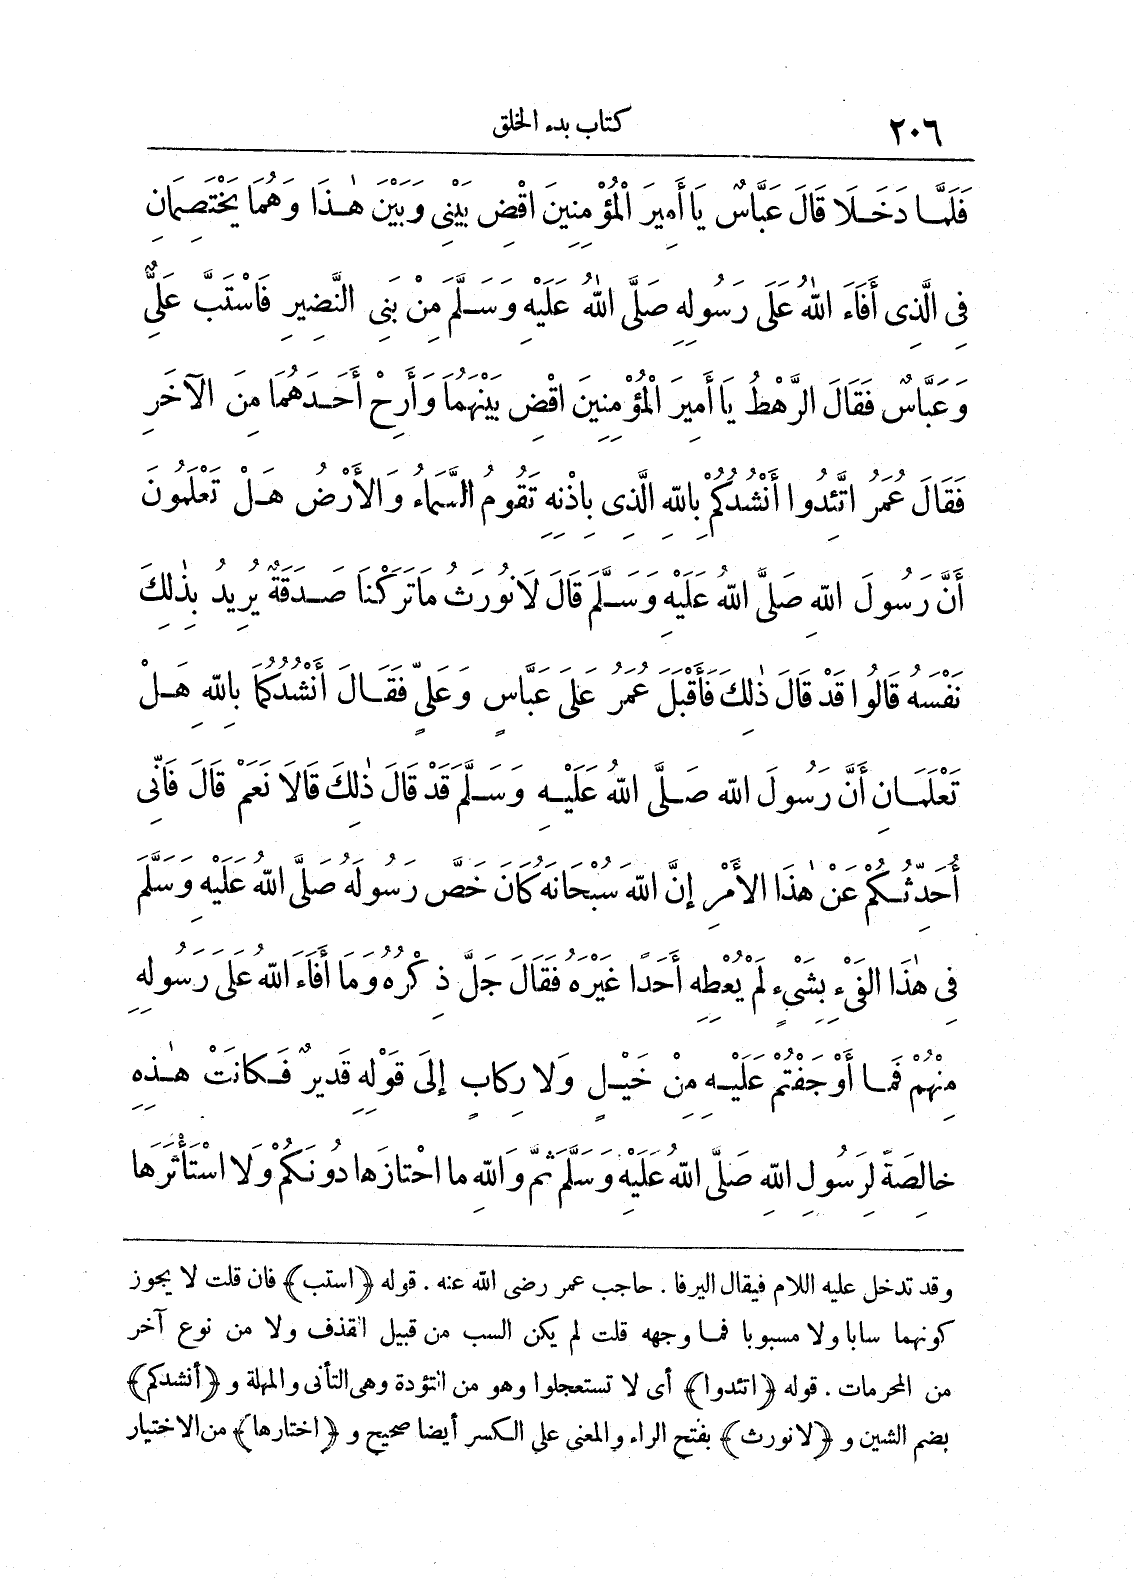 ٢٠٦ كتاب بدء الخلق
فَلَمَّا دَخَلَا قَالَ عَبَّاسٌ يَا أَمِيرَ الْمُؤْمِنِينَ اقْضِ بَيْنِى وَبَيْنَ هٰذَا وَهُمَا يَخْتَصِمَانِ
فِى الَّذِى أَفَاءَ اللهُ عَلَى رَسُولِهِ صَلَّى اللهُ عَلَيْهِ وَسَلَّمَ مِنْ بَنِى النَّضِيرِ فَاسْتَبَّ عَلِىٌّ
وَعَبَّاسٌ فَقَالَ الرَّهْطُ يَا أَمِيرَ الْمُؤْمِنِينَ اقْضِ بَيْنَهُمَا وَأَرِحْ أَحَدَهُمَا مِنَ الْآخَرِ
فَقَالَ عُمَرُ اتَّئِدُوا أَنْشُدُكُمْ بِاللهِ الَّذِى بِإِذْنِهِ تَقُومُ السَّمَاءُ وَالأَرْضُ هَلْ تَعْلَمُونَ
أَنَّ رَسُولَ اللهِ صَلَّى اللهُ عَلَيْهِ وَسَلَّمَ قَالَ لَا نُورَثُ مَا تَرَكْنَا صَدَقَةٌ يُرِيدُ بِذٰلِكَ
نَفْسَهُ قَالُوا قَدْ قَالَ ذٰلِكَ فَأَقْبَلَ عُمَرُ عَلَى عَبَّاسٍ وَعَلِىٍّ فَقَالَ أَنْشُدُكُمَا بِاللهِ هَلْ
تَعْلَمَانِ أَنَّ رَسُولَ اللهِ صَلَّى اللهُ عَلَيْهِ وَسَلَّمَ قَدْ قَالَ ذٰلِكَ قَالَا نَعَمْ قَالَ فَانِّى
أُحَدِّثُكُمْ عَنْ هٰذَا الأَمْرِ إِنَّ اللهَ سُبْحَانَهُ كَانَ خَصَّ رَسُولَهُ صَلَّى اللهُ عَلَيْهِ وَسَلَّمَ
فِى هٰذَا الفَىْءِ بِشَىْءٍ لَمْ يُعْطِهِ أَحَدًا غَيْرَهُ فَقَالَ جَلَّ ذِكْرُهُ وَمَا أَفَاءَ اللهُ عَلَى رَسُولِهِ
مِنْهُمْ فَمَا أَوْجَفْتُمْ عَلَيْهِ مِنْ خَيْلٍ وَلَا رِكَابٍ إِلَى قَوْلِهِ قَدِيرٌ فَكَانَتْ هٰذِهِ
خَالِصَةً لِرَسُولِ اللهِ صَلَّى اللهُ عَلَيْهِ وَسَلَّمَ ثُمَّ وَاللهِ مَا احْتَازَهَا دُونَكُمْ وَلَا اسْتَأْثَرَهَا
وقد تدخل عليه اللام فيقال اليرفا . حاجب عمر رضى الله عنه . قوله ﴿استب﴾ فان قلت لا يجوز
كونهما سابا ولا مسبوبا فما وجهه قلت لم يكن السب من قبيل القذف ولا من نوع آخر
من المحرمات . قوله ﴿اتئدوا﴾ أى لا تستعجلوا وهو من التؤدة وهى التأنى والمهلة و ﴿أنشدكم﴾
بضم الشين و ﴿لا نورث﴾ بفتح الراء والمعنى على الكسر أيضا صحيح و ﴿اختارها﴾ من الاختيار